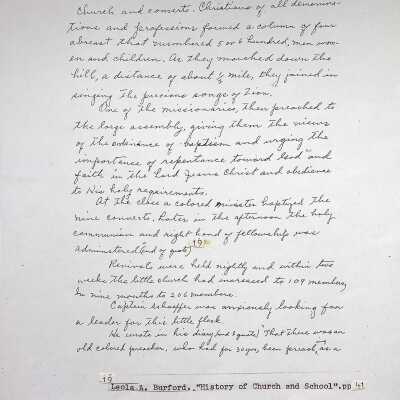 Church and converts. Christians of all denomina-
tions and professions formed a column of four
abreast that numbered 5 or 6 hundred, men wom-
en and children. As they marched down the
hill, a distance of about ½ mile, they joined in
singing the precious songs of Zion."
One of the missionaries, then preached to
the large assembly, giving them the views
of the ordinance of baptism and urging the
importance of repentance toward God" and
faith in the Lord Jesus Christ and obedience
to His holy requirements.
At the close a colored minister baptized the
nine converts, later in the afternoon the holy
communion and right hand of fellowship was
administered (end of quote) 19
Revivals were held nightly and within two
weeks the little church had increased to 109 members,
in nine months to 206 members.
Captain Schaeffer was anxiously looking for
a leader for this little flock
He wrote in his diary (and I quote) "That there was an
old colored preacher, who had for 30 yrs, been preach, as a
19
Leola A. Burford. "History of Church and School".pp 41